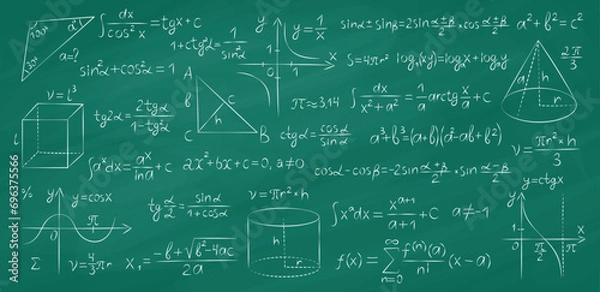 100° a° 30° a=?
∫ dx/cos²x = tgx+c
1+ctg²α = 1/sin²α
sin²α+cos²α=1
y 1 0 1 x
y=1/x
sinα±sinβ=2sin (α±β)/2 ×cos (α∓β)/2
a²+b²=c²
S=4πr² logₐ(xy)=logₐx+logₐy
2π/3
a h r
v=l³
l
tg2α= 2tgα/(1-tg²α)
A B C c h
π≈3,14
∫ dx/(x²+a²) = 1/a arctg x/a +C
ctgα= cosα/sinα
a³+b³=(a+b)(a²-ab+b²)
v= πr²×h/3
∫aˣdx= aˣ/lna +c
2x²+6x+c=0, a≠0
cosα-cosβ=-2sin (α+β)/2 sin (α-β)/2
y=ctgx
½ y y=cosx 0 π x
tg α/2 = sinα/(1+cosα)
v=πr²×h
h r
∫xᵃdx= xᵃ⁺¹/(a+1) +C a≠-1
y 1 0 π/2 π x
Σ v=4/3 πr³
x₁= (-b+√(b²-4ac))/2a
f(x)= Σ n=0 ∞ f⁽ⁿ⁾(a)/n! (x-a)
Adobe Stock
#696375566